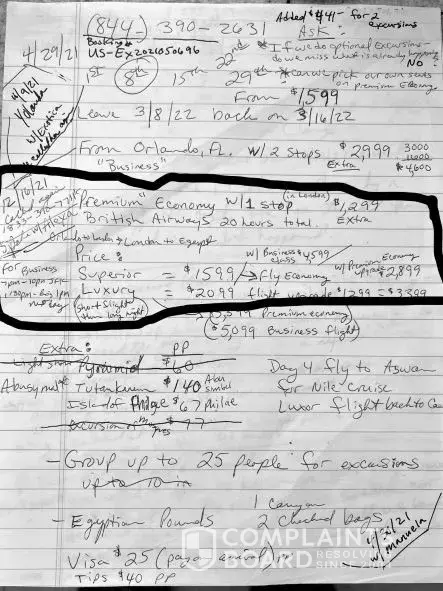 (844)- 390-2631
Added $41/- for 2 excursions
4/29/21
Booking #
US-Ex2021050696
ASK:
* If we do optional excursions
do we miss what is already happening
NO
1st 8th 15th 22nd 29th
* can we pick our own seats
on premium Economy
From $1,599
Leave 3/8/22 back on 3/16/22
From Orlando, FL. w/ 2 stops $2,999
Extra
3000
1600
4600
"Business"
12/16/21
"Premium" Economy w/ 1 stop (in London) $1,299
British Airways 20 hours total. Extra
Orlando to London → London to Egypt
Price:
w/ Business class $4599
w/ Premium Economy upgrade
Superior = $1599 → Fly Economy 2,899
Luxury = $2099 flight upgrade $1299 = $3399
For Business
(short flight then long night)
Premium economy)
($5,099 Business flight)
Extra: PP
Light show Pyramid $60
Tutankamun $140 Abu Simbel
Island of Philae $67 philae
Excursion of $77
Day 4 fly to Aswan
for Nile Cruise
Luxor flight back to
- Group up to 25 people for excursions
up to 10 in
- Egyptian Pounds
1 carryon
2 checked bags
w/ Manuela
Visa $25 (pay
Tips $40 PP
COMPLAINTS
BOARD
RESOLVING
SINCE